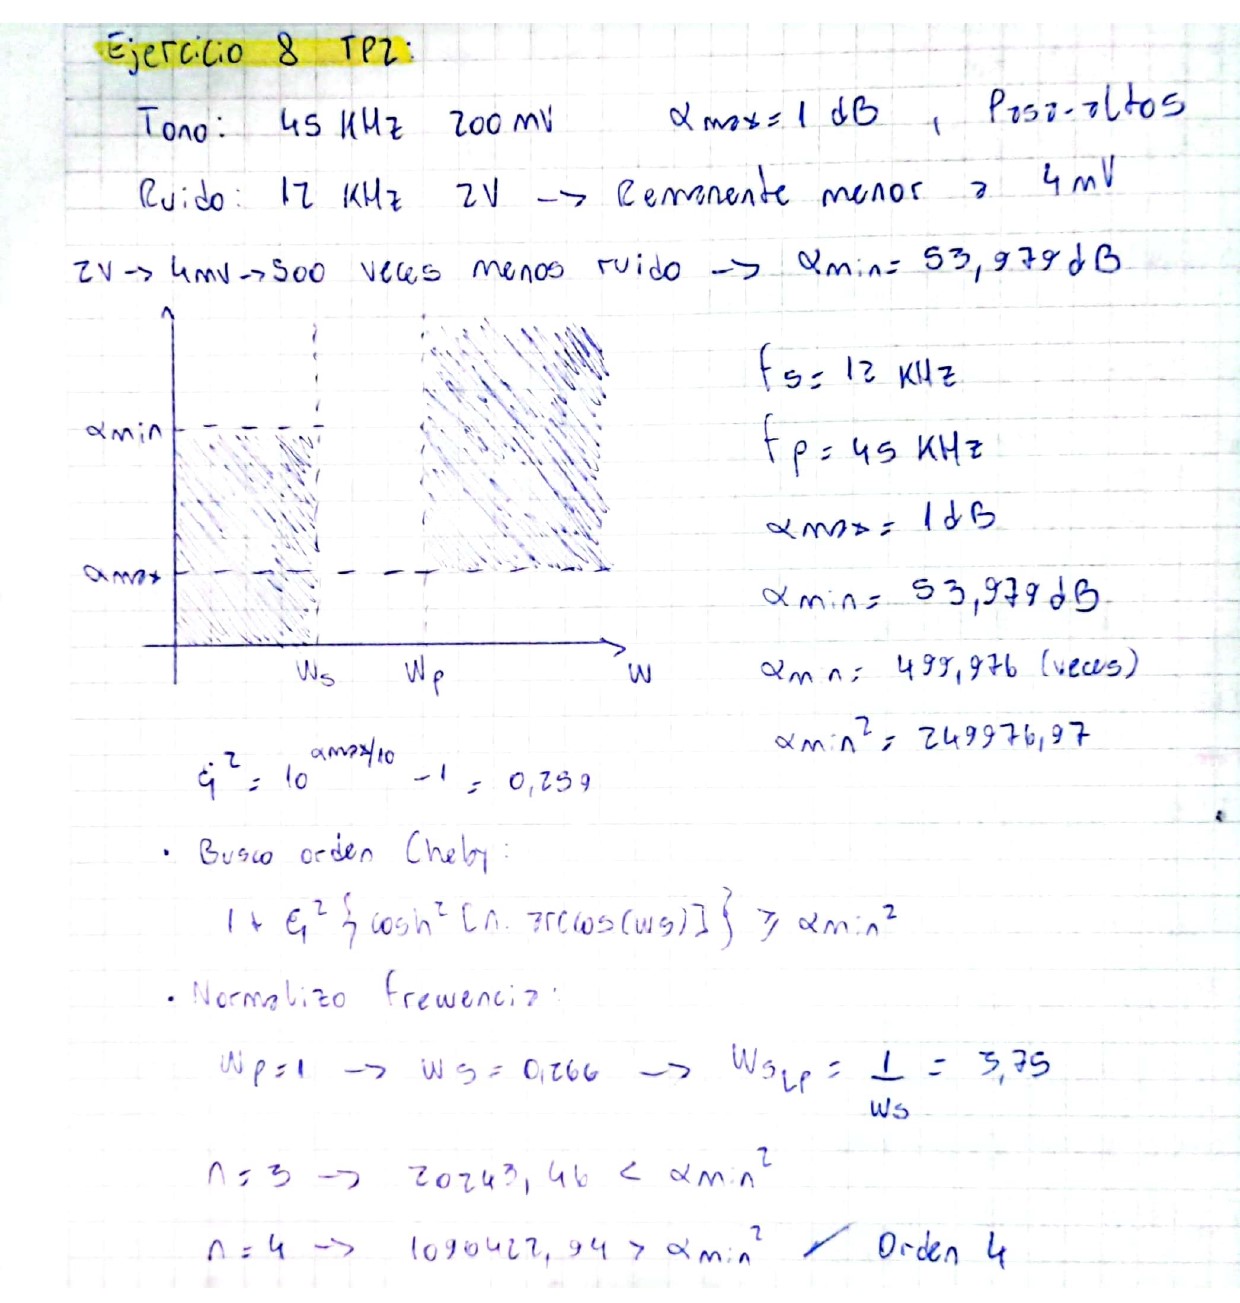 Ejercicio 8 TP2:
Tono: 45 KHz 200 mV αmax = 1 dB , Pasa-altos
Ruido: 12 KHz 2V -> Remanente menor a 4 mV
2V -> 4mV -> 500 veces menos ruido -> αmin = 53,979 dB
αmin
αmax
Ws Wp W
fs = 12 KHz
fp = 45 KHz
αmax = 1 dB
αmin = 53,979 dB
αmin = 499,976 (veces)
αmin² = 249976,97
ε² = 10^(αmax/10) - 1 = 0,259
• Busco orden Cheby:
1 + ε² { cosh² [n. arccos(ws)] } ≥ αmin²
• Normalizo frecuencia:
Wp = 1 -> Ws = 0,266 -> Ws_LP = 1/Ws = 3,75
n = 3 -> 20243,46 < αmin²
n = 4 -> 1090422,94 > αmin² ✓ Orden 4